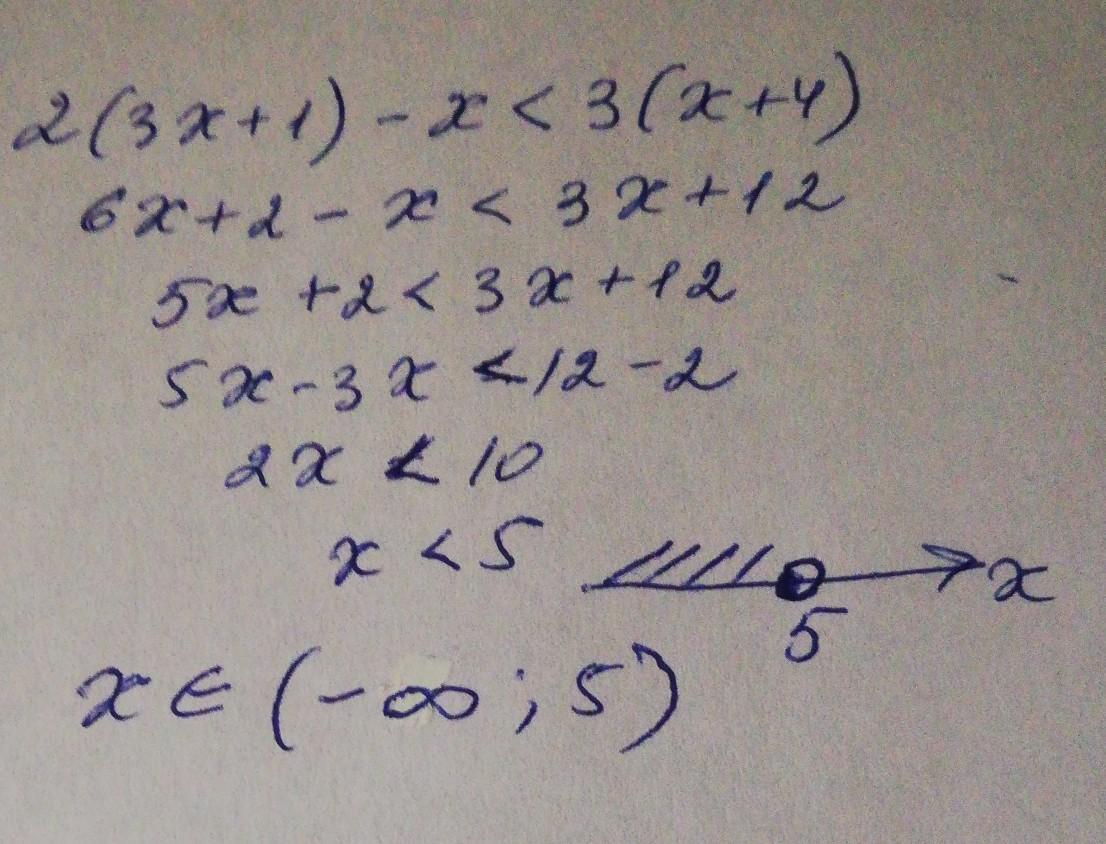 2(3x+1)-x<3(x+4)
6x+2-x<3x+12
5x+2<3x+12
5x-3x<12-2
2x<10
x<5
x
5
x∈(-∞;5)